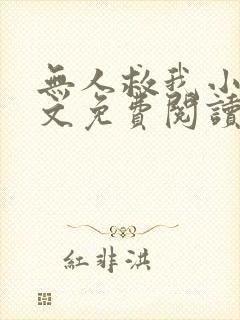 無人救我小
文免費閱讀
紅非洪